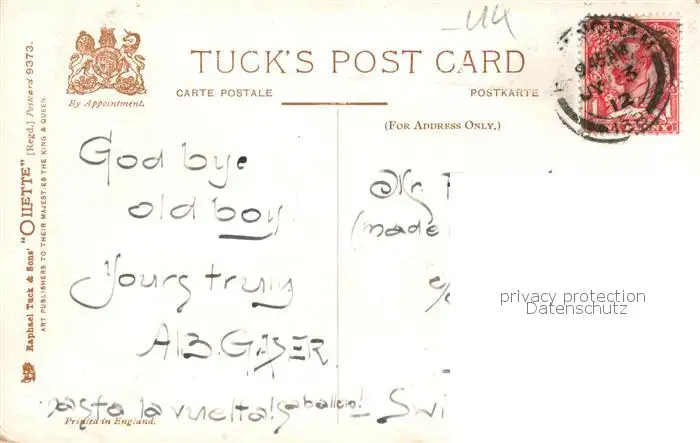 TUCK'S POST CARD
By Appointment.
CARTE POSTALE
POSTKARTE
(FOR ADDRESS ONLY.)
Raphael Tuck & Sons' "OILETTE" [Regd.] Postcard 9373.
ART PUBLISHERS TO THEIR MAJESTIES THE KING & QUEEN.
God bye
old boy!
Yours truly
hasta la vuelta! caballero!
Printed in England.
Mr.
(made
c/o
Swi
privacy protection
Datenschutz
9 45 AM
12